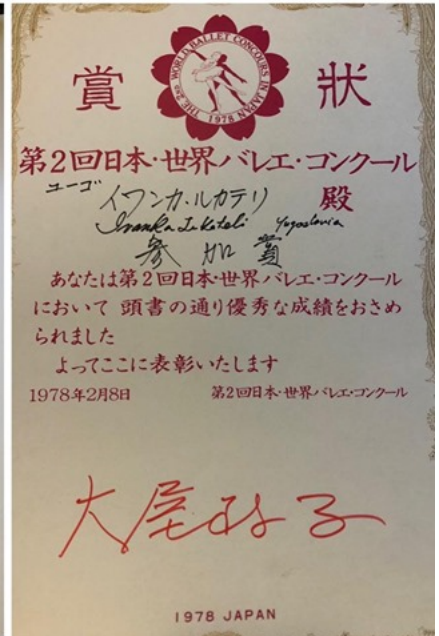 賞 状
THE 2ND WORLD BALLET CONCOURS IN JAPAN
1978
第2回日本・世界バレエ・コンクール
ユーゴ
イワンカ・ルカテリ 殿
Ivanka Lukateli Yugoslavia
参加賞
あなたは第2回日本・世界バレエ・コンクール
において 頭書の通り優秀な成績をおさめ
られました
よってここに表彰いたします
1978年2月8日 第2回日本・世界バレエ・コンクール
大屋政子
1978 JAPAN